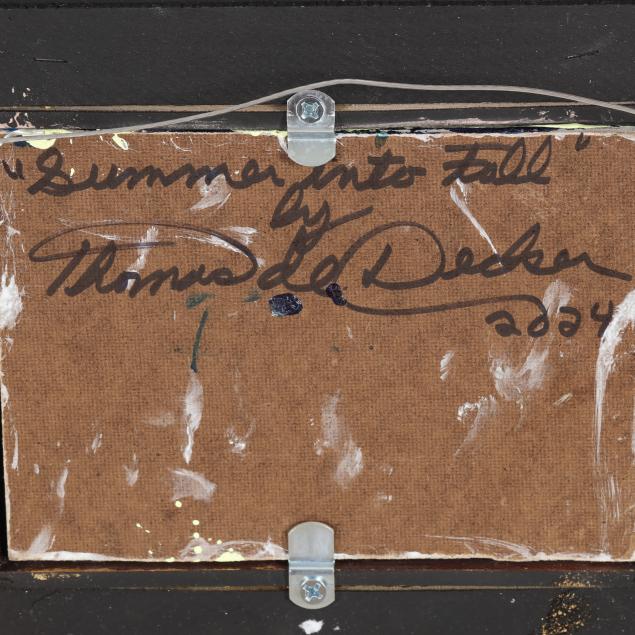 "Summer into Fall"
by
Thomas de Decker
2024